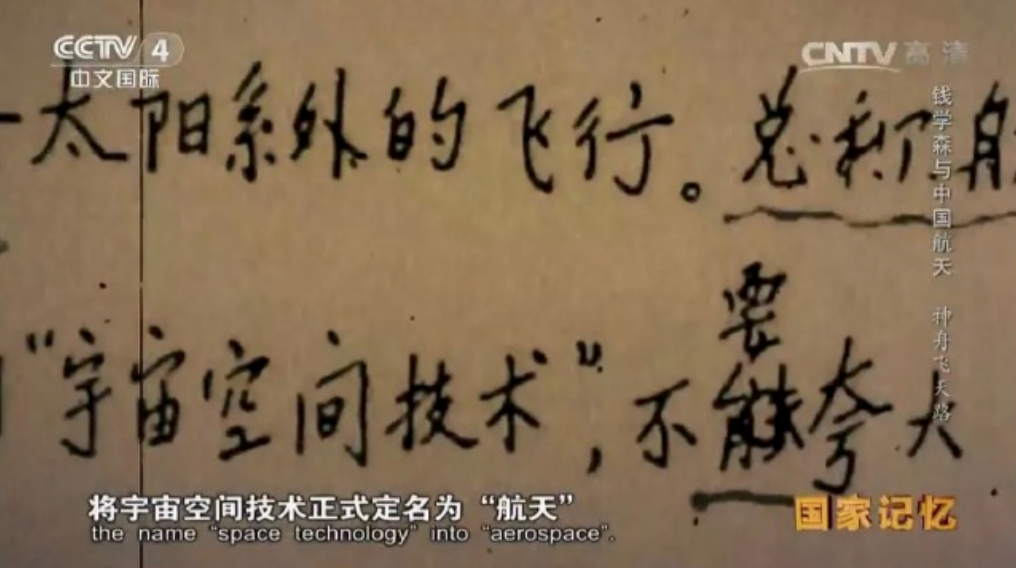 CCTV 4
中文国际
CNTV高清
太阳系外的飞行。总称
要
“宇宙空间技术”,不能夸大
钱学森与中国航天 神舟飞天路
将宇宙空间技术正式定名为“航天”
the name “space technology” into “aerospace”.
国家记忆